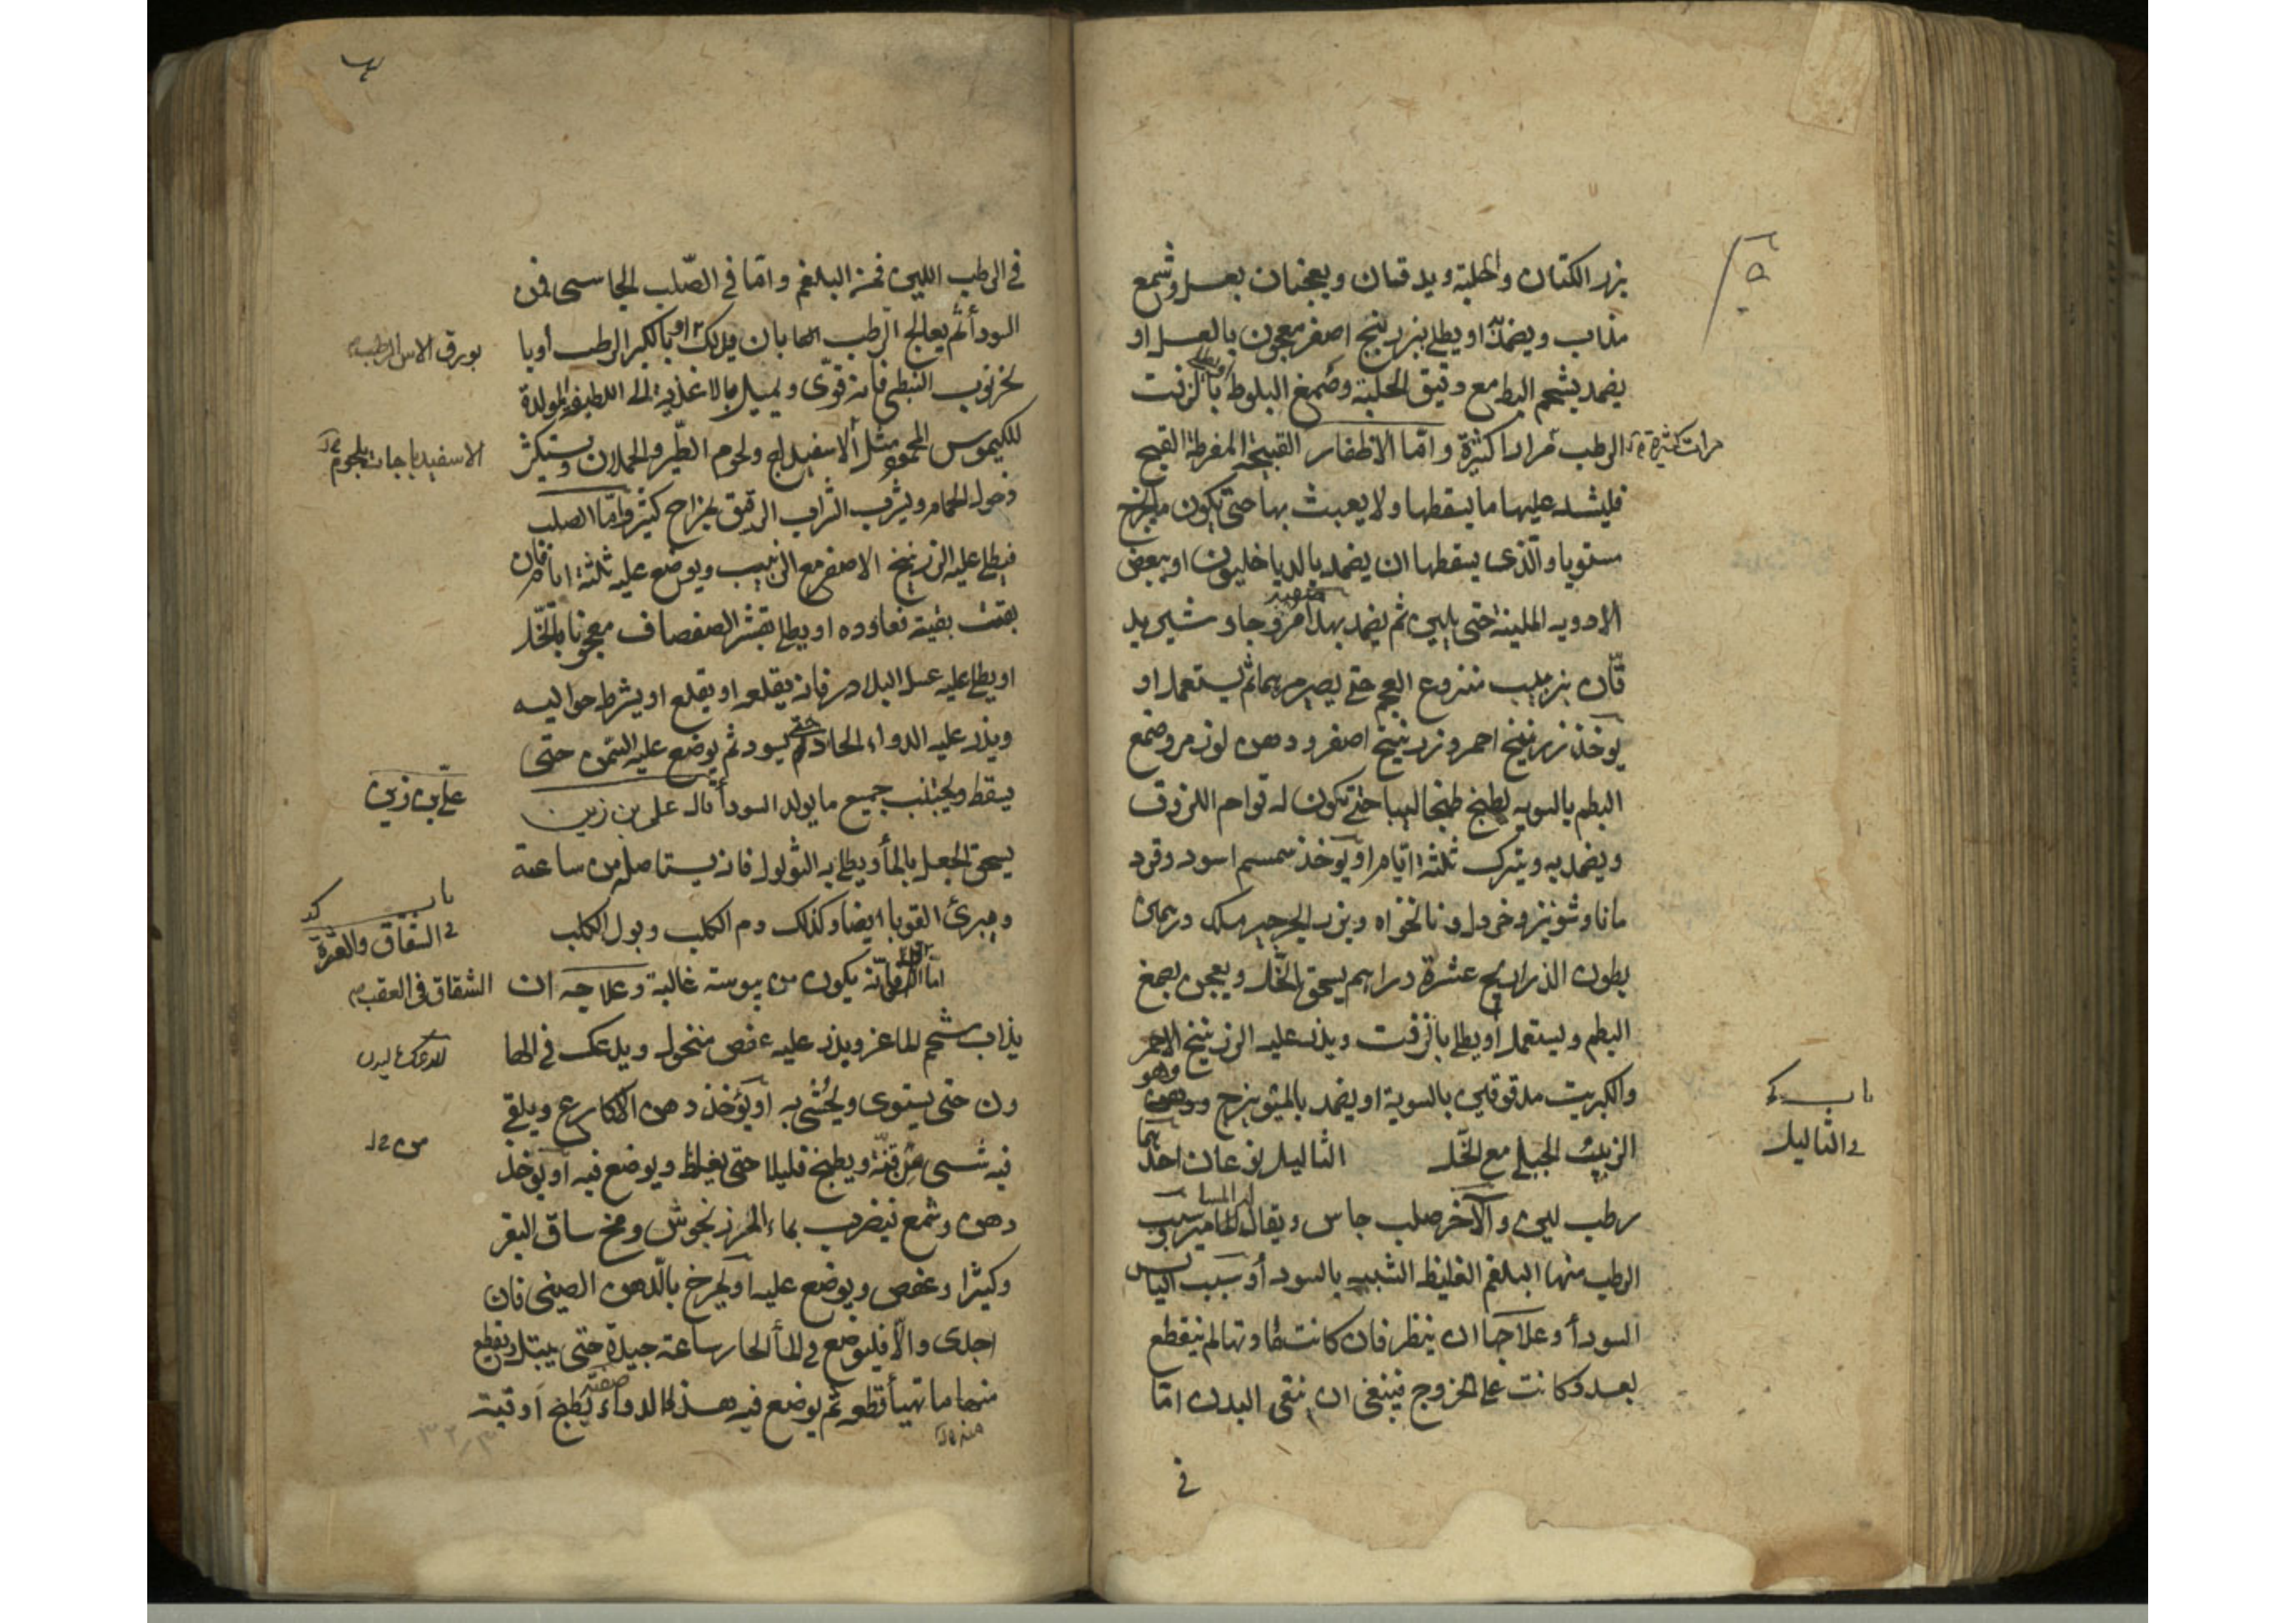 بزر الكتان والحلبة ويدقان ويعجنان بعسل وشمع
مذاب ويضمد او يطلى بزرنيخ اصفر معجون بالعسل او
يضمد بشحم البط مع دقيق الحلبة وصمغ البلوط بالزفت
الرطب مرارا كثيرة واما الاظفار القبيحة المفرطة القبح
مرات كثيرة
فليشد عليها ما يسقطها ولا يعبث بها حتى يكون ما يخرج
مستويا والذى يسقطها ان يضمد بالدياخليون او ببعض
الادويه الملينة حتى يلين ثم يضمد بهذا
صفته
زبيب منزوع العجم حتى يصير مرهما ثم يستعمل او
يوخذ زرنيخ احمر وزرنيخ اصفر ودهن لوز مر وصمغ
البطم بالسويه يطبخ طبخا حتى يكون له قوام اللزوق
ويضمد به ويترك ثلثة ايام او يوخذ سمسم اسود
وشونيز وخردل ونانخواه وبزر الجرجير درهمان
بطون الذراريح عشرة دراهم يسحق بالخل ويعجن بصمغ
البطم ويستعمل او يطلى بالزفت ويذر عليه الزرنيخ الاحمر
والكبريت مدقوقين بالسوية او يضمد بالميوبزج وهو
الزبيب الجبلى مع الخل الثاليل نوعان احدهما
باب
فى الثاليل
رطب لين والآخر صلب جاس ويقال لها المسامير وسبب
الرطب منها البلغم الغليظ الشبيه بالسودأ وسبب اليابس
السودأ وعلاجها ان ينظر فان كانت مادتها لم ينقطع
بعد وكانت على الخروج فينبغى ان ينقى البدن اما
فى
فى الرطب اللين فمن البلغم واما فى الصلب الجاسى فمن
السودأ ثم يعالج الرطب منها بان يدلك او بالكبر الرطب او با
بورق الاس الرطب
لخرنوب النبطى فانه قوى ويميل بالاغذية الى اللطيفة المولدة
للكيموس المحمود مثل الاسفيداج ولحوم الطير والحملان ويستكثر
الاسفيدباجات بلحوم
دخول الحمام ويشرب الشراب الرقيق بمزاج كثير واما الصلب
فيطلى عليه الزرنيخ الاصفر مع الزبيب ويوضع عليه ثلثة ايام فان
بقت بقية فعاوده او يطلى بقشر الصفصاف معجونا بالخل
او يطلى عليه عسل البلادر فانه يقلعه او يقلع او يشرط حواليه
ويذر عليه الدواء الحاد حتى يسود ثم يوضع عليه السمن حتى
يسقط ويجتنب جميع ما يولد السودأ قال على بن زين
على بن زين
يسحق الجعل بالمأ ويطلى به الثولول فانه يستاصله من ساعته
ويبرئ القوبا ايضا وكذلك دم الكلب وبول الكلب
باب كد
فى الشقاق والعثرة
اما فانه يكون من يبوسة غالبة وعلاجه ان
الشقاق فى العقب
يذاب شحم الماعز ويذر عليه عفص منخول ويدعك فى الها
ون حتى يستوى ويحشى به او يؤخذ دهن الاكارع ويلقى
فيه شى من قنة ويطبخ قليلا حتى يغلظ ويوضع فيه او يوخذ
دهن وشمع فيضرب بماء المرزنجوش ومخ ساق البقر
وكثيرا وعفص ويوضع عليه او يمرخ بالدهن الصينى فان
اجدى والا فليوضع فى المأ الحار ساعة جيدة حتى يبتل ويقطع
منها ما تهيأ قطعه ثم يوضع فيه هذا الدواء صفته يطبخ اوقية